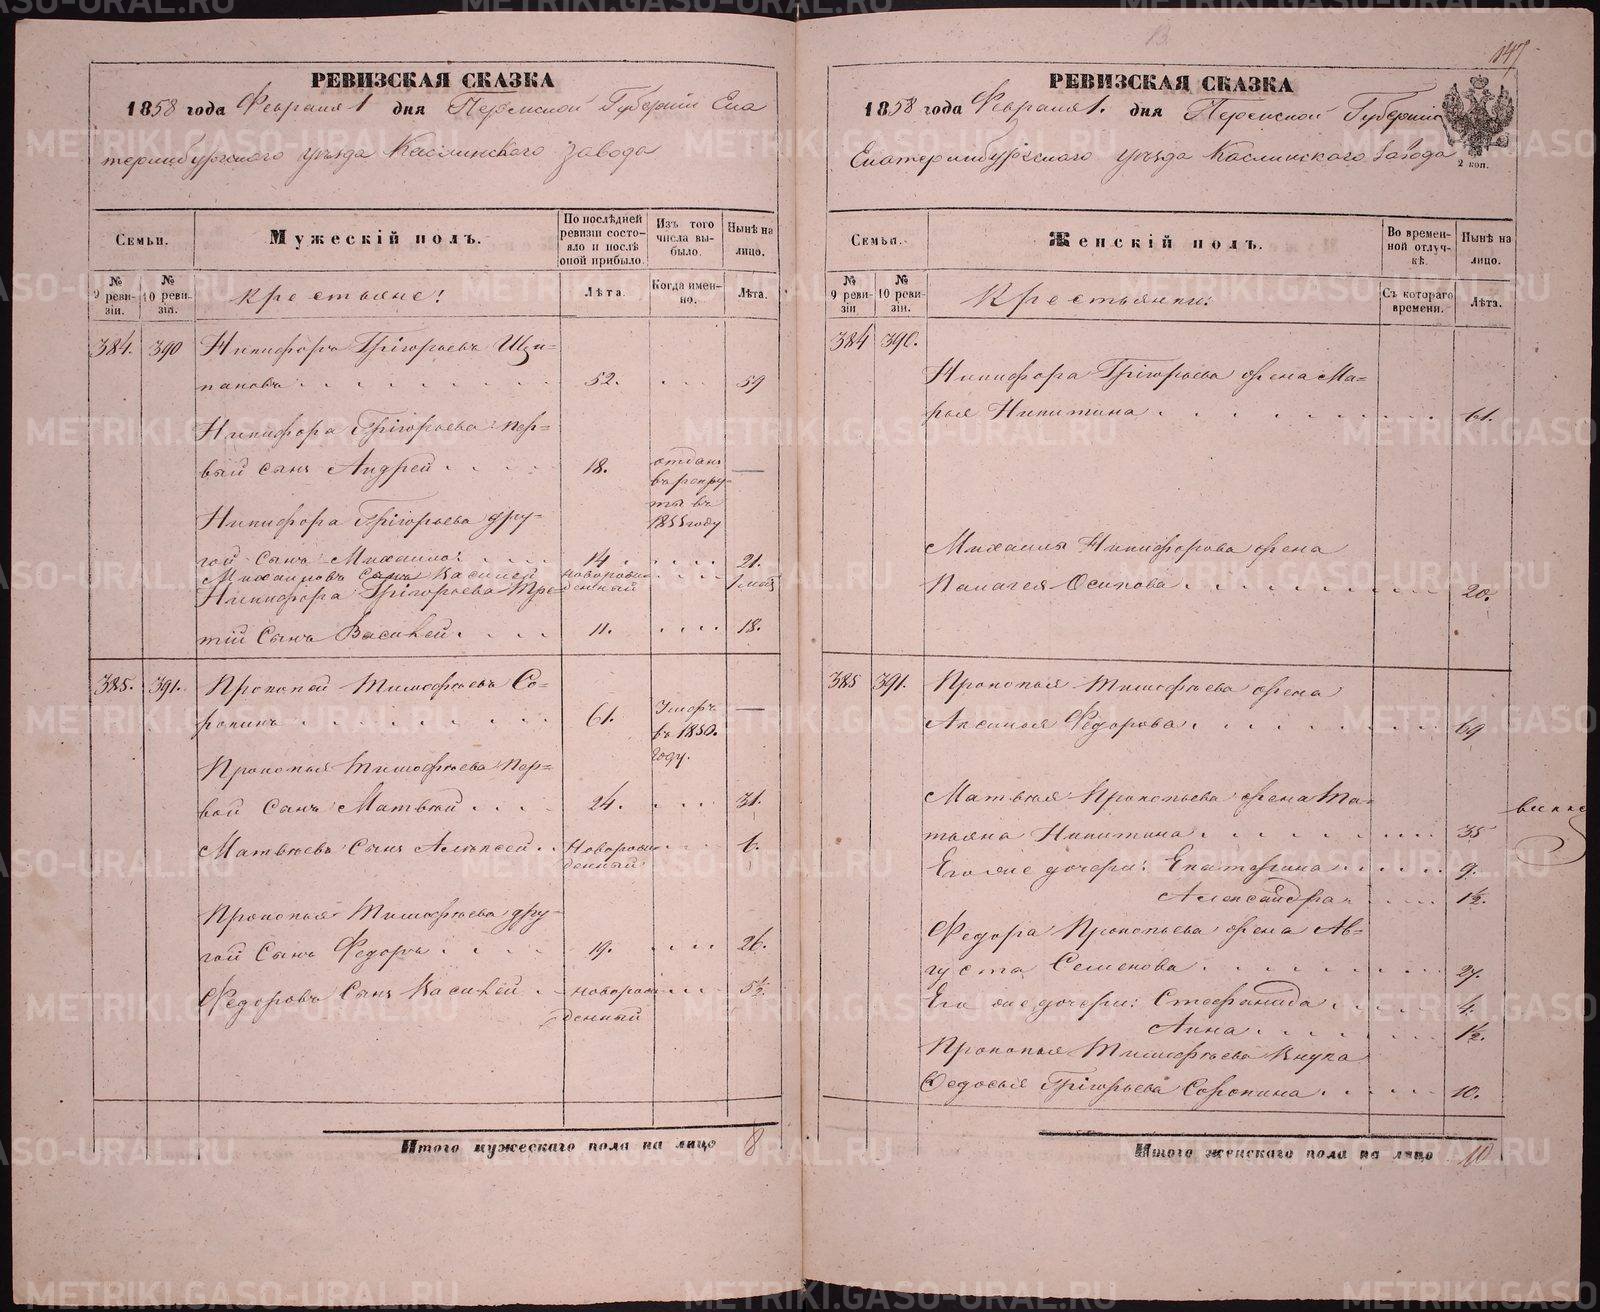 РЕВИЗСКАЯ СКАЗКА
1858 года Февраля 1 дня Пермской Губернии Ека
теринбургского уѣзда Каслинского завода
Семьи.
Мужескій полъ.
По послѣдней ревизіи состояло и послѣ оной прибыло.
Изъ того числа выбыло.
Нынѣ на лицо.
№ 9 ревизіи.
№ 10 ревизіи.
Крестьяне:
Лѣта.
Когда именно.
Лѣта.
384. 390 Никифоръ Григорьевъ Щи-
пановъ 52. 59
Никифора Григорьева пер-
вый сынъ Андрей 18. отданъ въ рекруты въ 1855 году —
Никифора Григорьева дру-
гой сынъ Михаило: 14. 21.
Михаиловъ сынъ Василей новорожденный
Никифора Григорьева тре-
тій сынъ Василей. 11. 18.
385. 391. Прокопей Тимофѣевъ Со-
рокинъ 61. Умеръ въ 1850. году. —
Прокопья Тимофѣева пер-
вой сынъ Матвѣй 24. 31.
Матвѣевъ сынъ Алексей Новорожденный 6.
Прокопья Тимофѣева дру-
гой сынъ Федоръ 19. 26.
Федоровъ сынъ Василей новорожденный 5½.
Итого мужескаго пола на лицо 8
147
РЕВИЗСКАЯ СКАЗКА
1858 года Февраля 1. дня Пермской Губерніи
Екатеринбургского уѣзда Каслинского завода
2 коп.
Семьи.
Женскій полъ.
Во временной отлучкѣ.
Нынѣ на лицо.
№ 9 ревизіи
№ 10 ревизіи.
Крестьянки:
Съ котораго времени.
Лѣта.
384 390.
Никифора Григорьева жена Ма-
рья Никитина 61.
Михаилы Никифорова жена
Палагея Осипова 20.
385 391. Прокопья Тимофѣева жена
Аксинья Федорова 69
Матвѣя Прокопьева жена Та-
тьяна Никитина 35
Его же дочери: Екатерина 9.
Александра 1½.
Федора Прокопьева жена Ав-
густа Семенова 27.
Его же дочери: Стефанида 4.
Анна 1½.
Прокопья Тимофѣева внука
Федосья Григорьева Сорокина 10.
Итого женскаго пола на лицо 10
METRIKI.GASO-URAL.RU